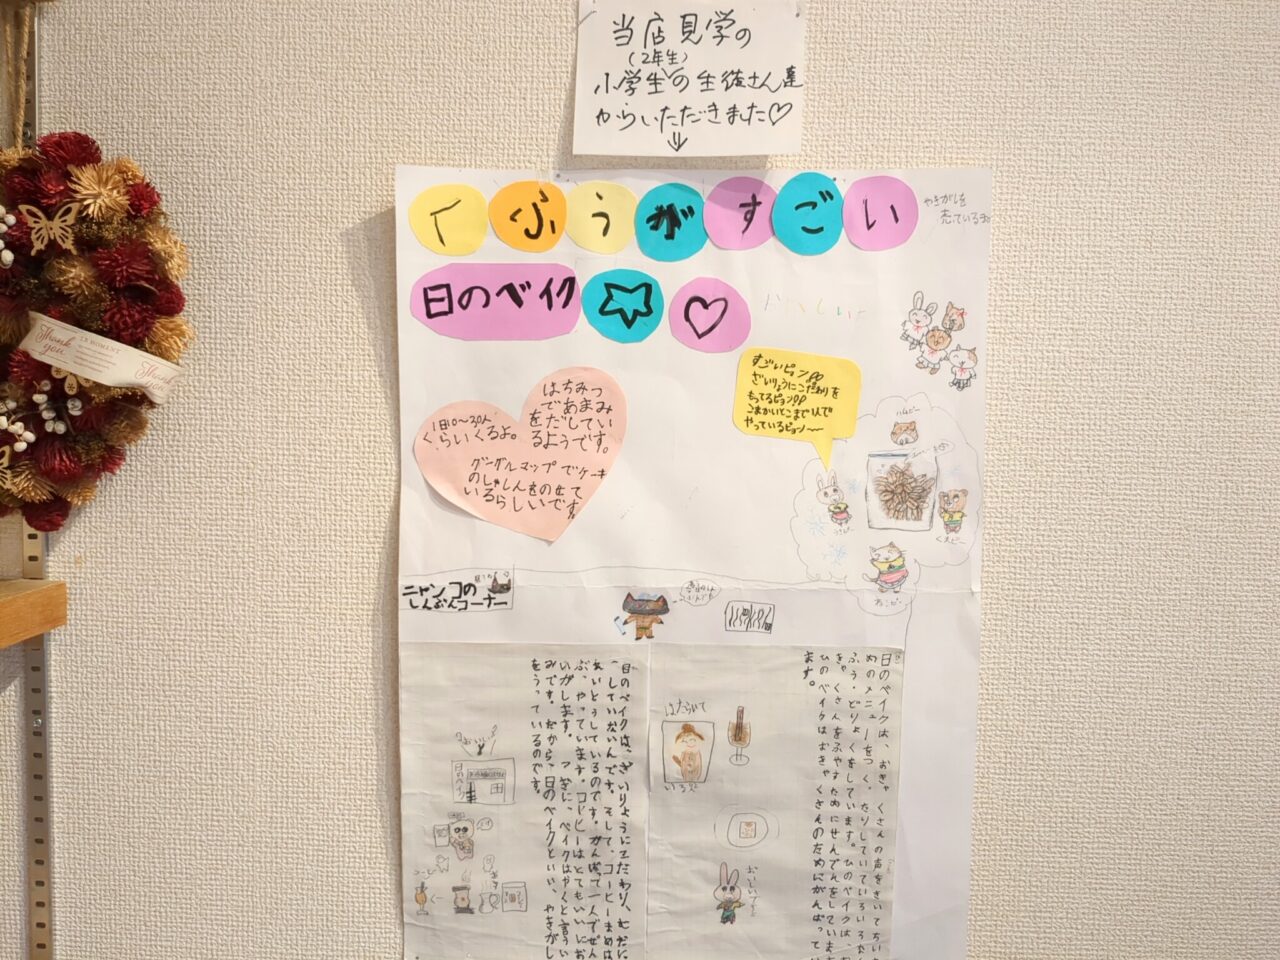 当店見学の
(2年生)
小学生の生徒さん達
からいただきました♡
↓
くふうがすごい
やきがしを
売っているよ
日のベイク☆♡
おいしいよ
すごいピョン!!
ざいりょうにこだわりを
もってるピョン!!
こまかいとこまで1人で
やっているピョン〜
はちみつ
であまみ
をだしてい
るようです。
1日10〜30人
くらいくるよ。
グーグルマップでケーキ
のしゃしんをのせて
いるらしいです。
ハムピー
うさピー
くまピー
ねこピー
ニャンコの
しんぶんコーナー
日のベイクは、おきゃくさんの声をきいてちい
めのメニューをつくったりしていていろいろな
ふう・どりょくをしています。ひのベイクは、
きゃくさんをふやすためにせんでんをしています
ひのベイクはおきゃくさんのためにがんばってい
ます。
はたらいて
いる人
おいしいです
日のベイクは、ざいりょうにこだわり、むだに
していないんです。そして、コーヒーまめは
あいとうしているのです。がんばって一人でぜん
ぶ、やっています。コーヒーはとてもいいにお
いがします。つぎに、ベイクはやくと言うい
みです。だから、日のベイクといい、やきがし
をうっているのです。
日のベイク